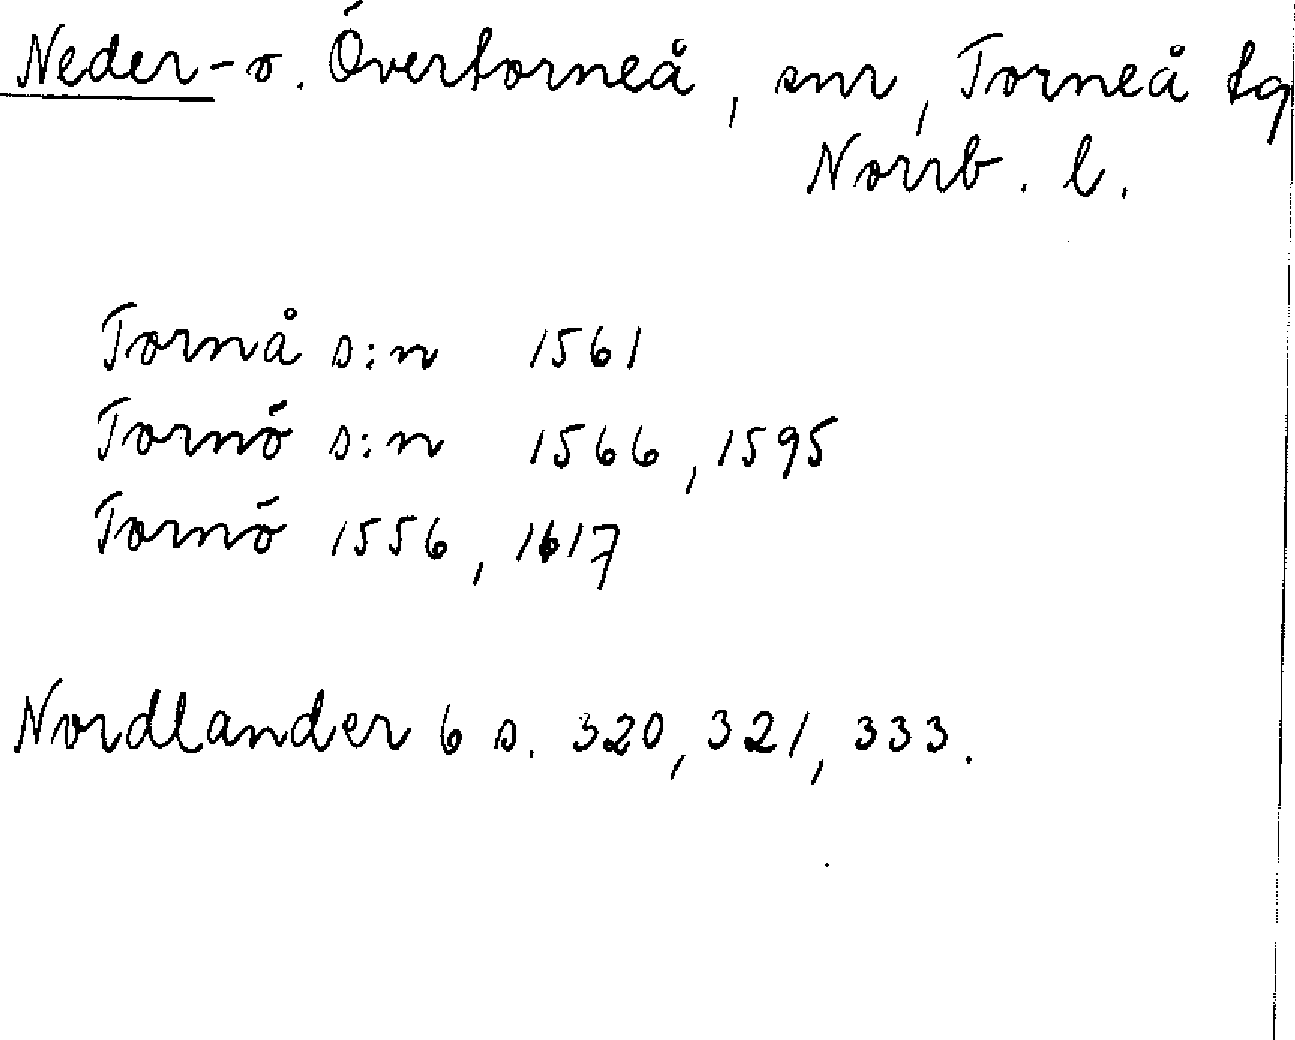 Neder- o. Övertorneå, snr, Torneå tg
Norrb. l.
Tornå s:n 1561
Tornö s:n 1566, 1595
Tornö 1556, 1617
Nordlander 6 s. 320, 321, 333.